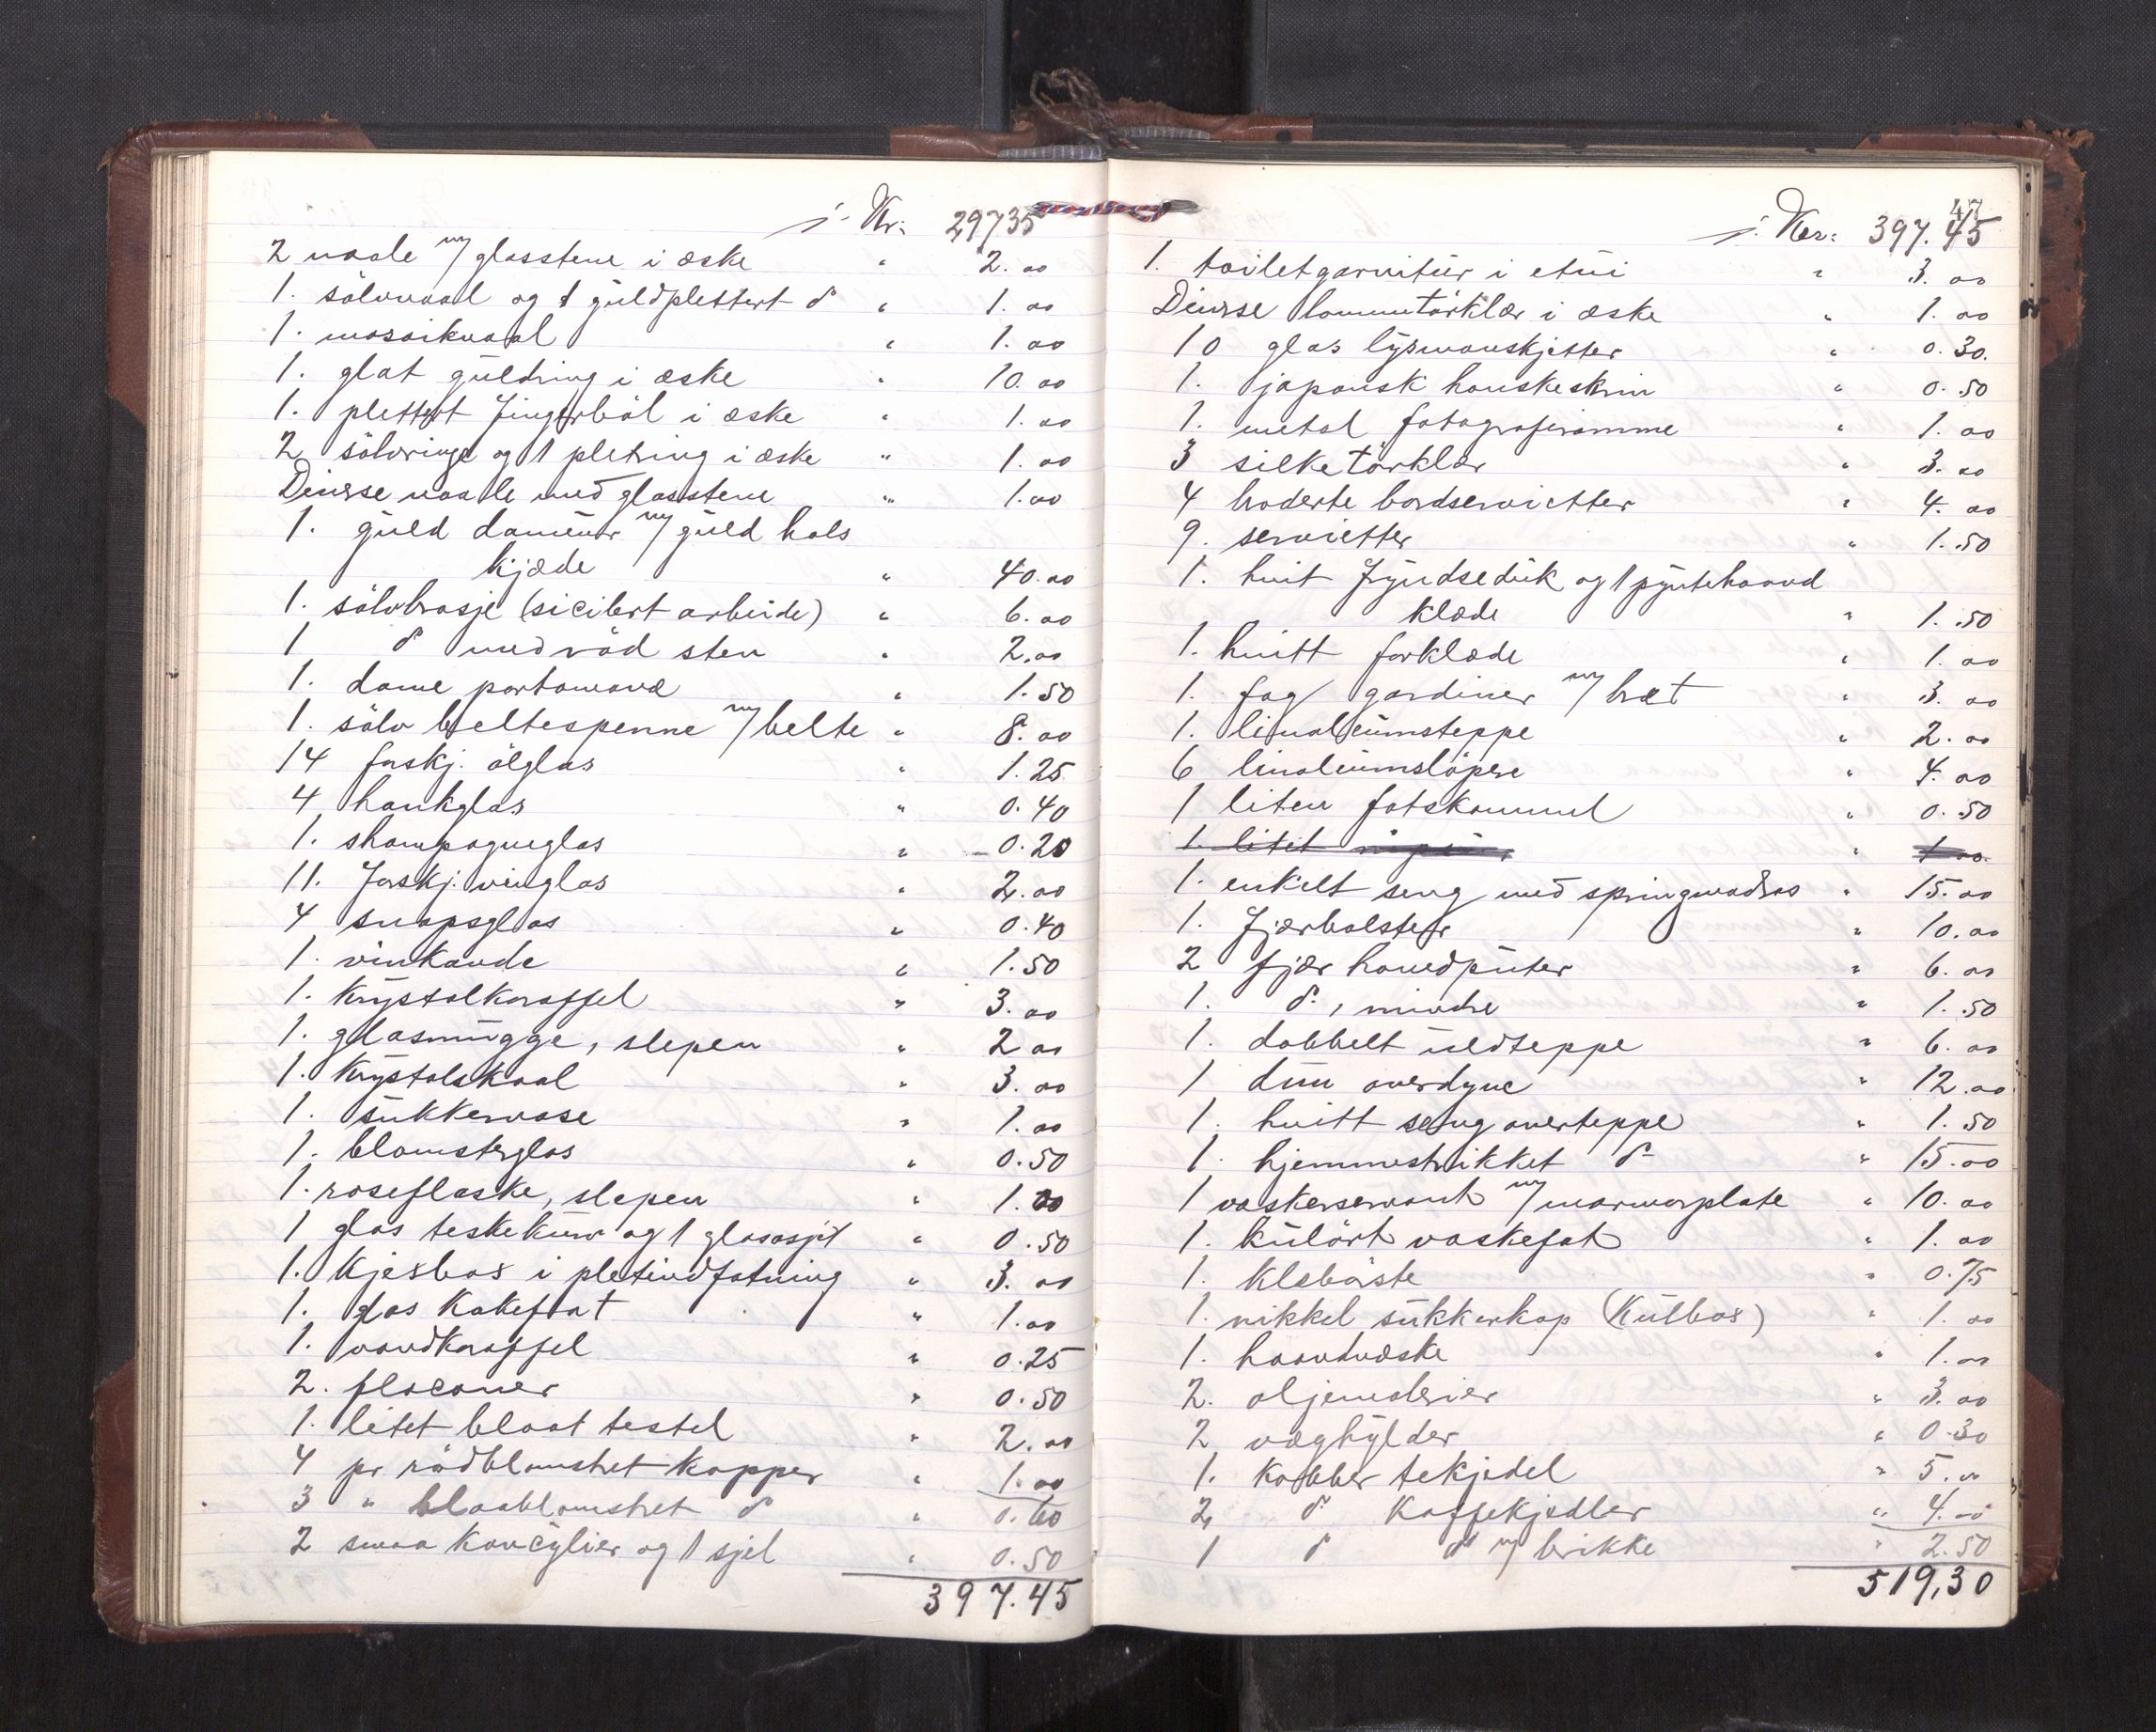 j. Kr. 297 35
2 naale m/ glasstene i æske " 2.00
1. sölvnaal og 1 guldplettert do " 1.00
1. mosaiknaal " 1.00
1. glat guldring i æske " 10.00
1. plettert fingerböl i æske " 1.00
2 sölvringe og 1 pletring i æske " 1.00
Diverse naale med glasstene " 1.00
1. guld dameur m/ guld hals
kjæde " 40.00
1. sölvbrosje (siceliert arbeide) " 6.00
1 do med röd sten " 2.00
1. dame portomonæ " 1.50
1. sölv beltespenne m/ belte " 8.00
14 forskj. ölglas " 1.25
4 hankglas " 0.40
1. shampagneglas " 0.20
11. forskj. vinglas " 2.00
4 snapsglas " 0.40
1. vinkande " 1.50
1. Krystalkaraffel " 3.00
1. glasmugge, slepen " 2 00
1. Krystalskaal " 3.00
1. sukkervase " 1.00
1. blomsterglas " 0.50
1. roseflaske, slepen " 1.00
1 glas teskekurv og 1 glasasjet " 0.50
1. Kjeksbox i pletindfatning " 3.00
1. glas Kakefat " 1.00
1. vandkaraffel " 0.25
2. flaconer " 0.50
1. litet blaat testel " 2.00
4 pr rödblomstret Kopper " 1.00
3 " blaablomstret do " 0.60
2 smaa Koncylier og 1 sjel " 0.50
397.45
47
j. Kr: 397.45
1. toiletgarnitur i etui " 3.00
Diverse lommetörklær i æske " 1.00
10 glas lysmanskjetter " 0.30.
1. japansk hanskeskrin " 0.50
1. metal fotografiramme " 1.00
3 silketörklær " 3.00
4 broderte bordservietter " 4.00
9. servietter " 1.50
1. hvit fryndseduk og 1 pyntehaand
klæde " 1.50
1. hvitt forklæde " 1.00
1. fag gardiner m/ bræt " 3.00
1. linoleumsteppe " 2.00
6 linoleumslöpere " 4.00
1 liten fotskammel " 0.50
1. litet " 1 00
1. enkelt seng med springmadras " 15.00
1. fjærbolster " 10.00
2 fjær hovedputer " 6.00
1. do, mindre " 1.50
1. dobbelt uldteppe " 6.00
1 dun overdyne " 12.00
1. hvitt seng overteppe " 1.50
1. hjemmestrikket do " 15.00
1 vaskerservant m/ marmorplate " 10.00
1. kulört vaskefat " 1.00
1. Klebörste " 0.75
1. nikkel sukkerkop (Kulbox) " 1.00
1. haandvæske " 1.00
2. oljemalerier " 3.00
2 væghylder " 0.30
1. Kobber tekjedel " 5.00
2 do Kaffekjedler " 4.00
1 do do m/ brikke " 2.50
519,30